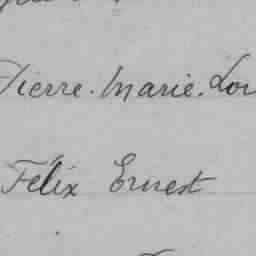 Pierre. Marie. Lou
Félix Ernest